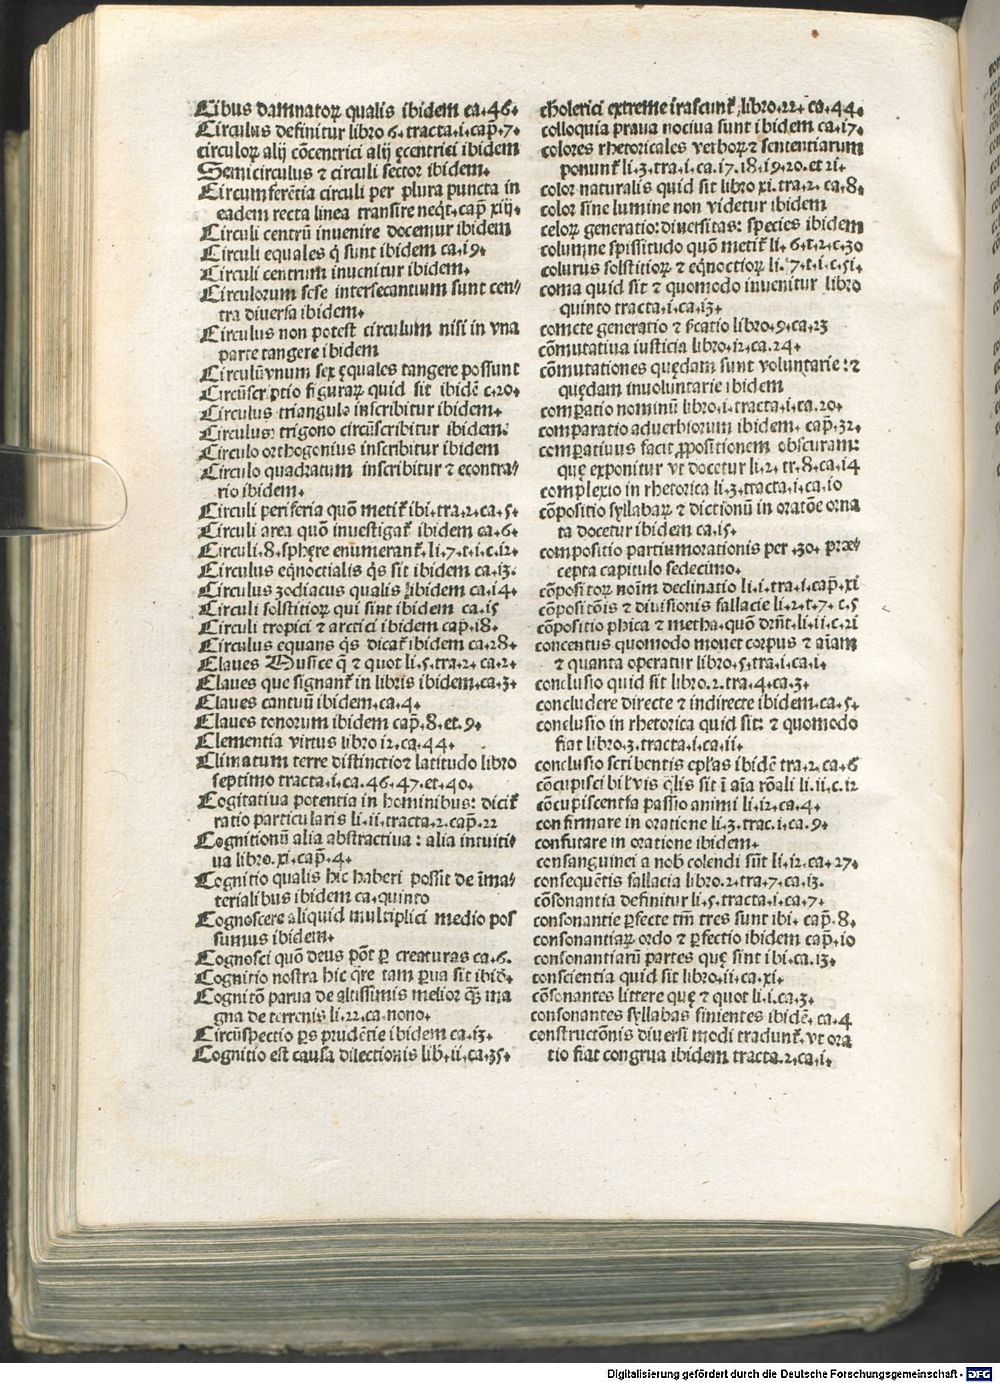 Cibus damnatoꝝ qualis ibidem ca.46.
Circulus definitur libro 6.tracta.i.cap̄.7.
circuloꝝ alij cōcentrici alij ęcentrici ibidem
Semicirculus ⁊ circuli sector ibidem.
Circumferētia circuli per plura puncta in
eadem recta linea transire neq̄t.cap̄ xiij.
Circuli centrū inuenire docemur ibidem
Circuli equales q̄ sunt ibidem ca.i9.
Circuli centrum inuenitur ibidem.
Circulorum sese intersecantium sunt cen/
tra diuersa ibidem.
Circulus non potest circulum nisi in vna
parte tangere ibidem
Circulūvnum sex ęquales tangere possunt
Circūscriptio figuraꝝ quid sit ibidē c.20.
Circulus triangulo inscribitur ibidem.
Circulus: trigono circūscribitur ibidem.
Circulo orthogonius inscribitur ibidem
Circulo quadratum inscribitur ⁊ econtra/
rio ibidem.
Circuli periferia quō metit᷑ ibi.tra.2.ca.5.
Circuli area quō inuestigat᷑ ibidem ca.6.
Circuli.8.sphęre enumerant᷑.li.7.t.i.c.i2.
Circulus eq̄noctialis q̄s sit ibidem ca.i3.
Circulus zodiacus qualis ibidem ca.i4.
Circuli solstitioꝝ qui sint ibidem ca.i5
Circuli tropici ⁊ arctici ibidem cap̄.i8.
Circulus equans q̄s dicat᷑ ibidem ca.28.
Claues Musice q̄ ⁊ quot li.5.tra.2.ca.2.
Claues que signant᷑ in libris ibidem.ca.3.
Claues cantuū ibidem.ca.4.
Claues tonorum ibidem cap̄.8.et.9.
Clementia virtus libro i2.ca.44.
Climatum terre distinctioꝛ latitudo libro
septimo tracta.i.ca.46.47.et.40.
Cogitatiua potentia in hominibus: dicit᷑
ratio particularis li.ii.tracta.2.cap̄.22
Cognitionū alia abstractiua: alia intuiti/
ua libro.xi.cap̄.4.
Cognitio qualis hic haberi possit de īma/
terialibus ibidem ca.quinto
Cognoscere aliquid multiplici medio pos
sumus ibidem.
Cognosci quō deus pōt ꝑ creaturas ca.6.
Cognitio nostra hic q̄re tam ꝑua sit ibid̄.
Cognitō parua de altissimis melior q̄ȝ ma
gna de terrenis li.22.ca.nono.
Circūspectio ps̄ prudētie ibidem ca.i3.
Cognitio est causa dilectionis lib̄.ii.ca.35.
cholerici extreme irascunt᷑,libro.22.ca.44.
colloquia praua nociua sunt ibidem ca.i7.
colores rhetoricales verboꝝ⁊ sententiarum
ponunt᷑ li.3.tra.i.ca.i7.i8.i9.20.et 2i.
color naturalis quid sit libro xi.tra.2.ca.8.
color sine lumine non videtur ibidem
celoꝝ generatio:diuersitas: species ibidem
columne spissitudo quō metit᷑ li.6.t.2.c.30
colurus solstitioꝝ ⁊ eq̄noctioꝝ li.7.t.i.c.5i.
coma quid sit ⁊ quomodo inuenitur libro
quinto tracta.i.ca.i3.
comete generatio ⁊ sc̄atio libro.9.ca.23
cōmutatiua iusticia libro.i2.ca.24.
cōmutationes quędam sunt voluntarie:⁊
quędam inuoluntarie ibidem
comꝑatio nominū libro.i.tracta.i.ca.20.
comparatio aduerbiorum ibidem. cap̄.32.
comꝑatiuus facit ꝓpositionem obscuram:
quę exponitur vt docetur li.2.tr.8.ca.i4
complexio in rhetorica li.3.tracta.i.ca.i0
cōpositio syllabaꝝ ⁊ dictionū in oratōe orna
ta docetur ibidem ca.i5.
compositio partiumorationis per .30. præ
cepta capitulo sedecimo.
cōpositoꝝ noīm declinatio li.i.tra.i.cap̄.xi
cōpositōis ⁊ diuisionis fallacie li.2.t.7.c.5
cōpositio phica ⁊ metha.quō drn̄t.li.ii.c.2i
concentus quomodo mouet corpus ⁊ aīam
⁊ quanta operatur libro.5.tra.i.ca.i.
conclusio quid sit libro.2.tra.4.ca.3.
concludere directe ⁊ indirecte ibidem.ca.5.
conclusio in rhetorica quid sit: ⁊ quomodo
fiat libro.3.tracta.i.ca.ii.
conclusio scribentis ep̄las ibidē tra.2.ca.6
cōcupisci q̄lis sit ī aīa rōali li.ii.c.i2
cōcupiscentia passio animi li.i2.ca.4.
confirmare in oratione li.3.trac.i.ca.9.
confutare in oratione ibidem.
consanguinei a nob̄ colendi sūt li.i2.ca.27.
consequētis fallacia libro.2.tra.7.ca.i3.
cōsonantia definitur li.5.tracta.i.ca.7.
consonantie ꝑfecte tm̄ tres sunt ibi.cap̄.8.
consonantiaꝝ ordo ⁊ ꝑfectio ibidem cap̄.i0
consonantiarū partes quę sint ibi.ca.i3.
conscientia quid sit libro.ii.ca.xi.
cōsonantes littere quę ⁊ quot li.i.ca.3.
consonantes syllabas finientes ibidē.ca.4
constructōnis diuersi modi tradunt᷑.vt ora
tio fiat congrua ibidem tracta.2.ca.i.
Digitalisierung gefördert durch die Deutsche Forschungsgemeinschaft - DFG